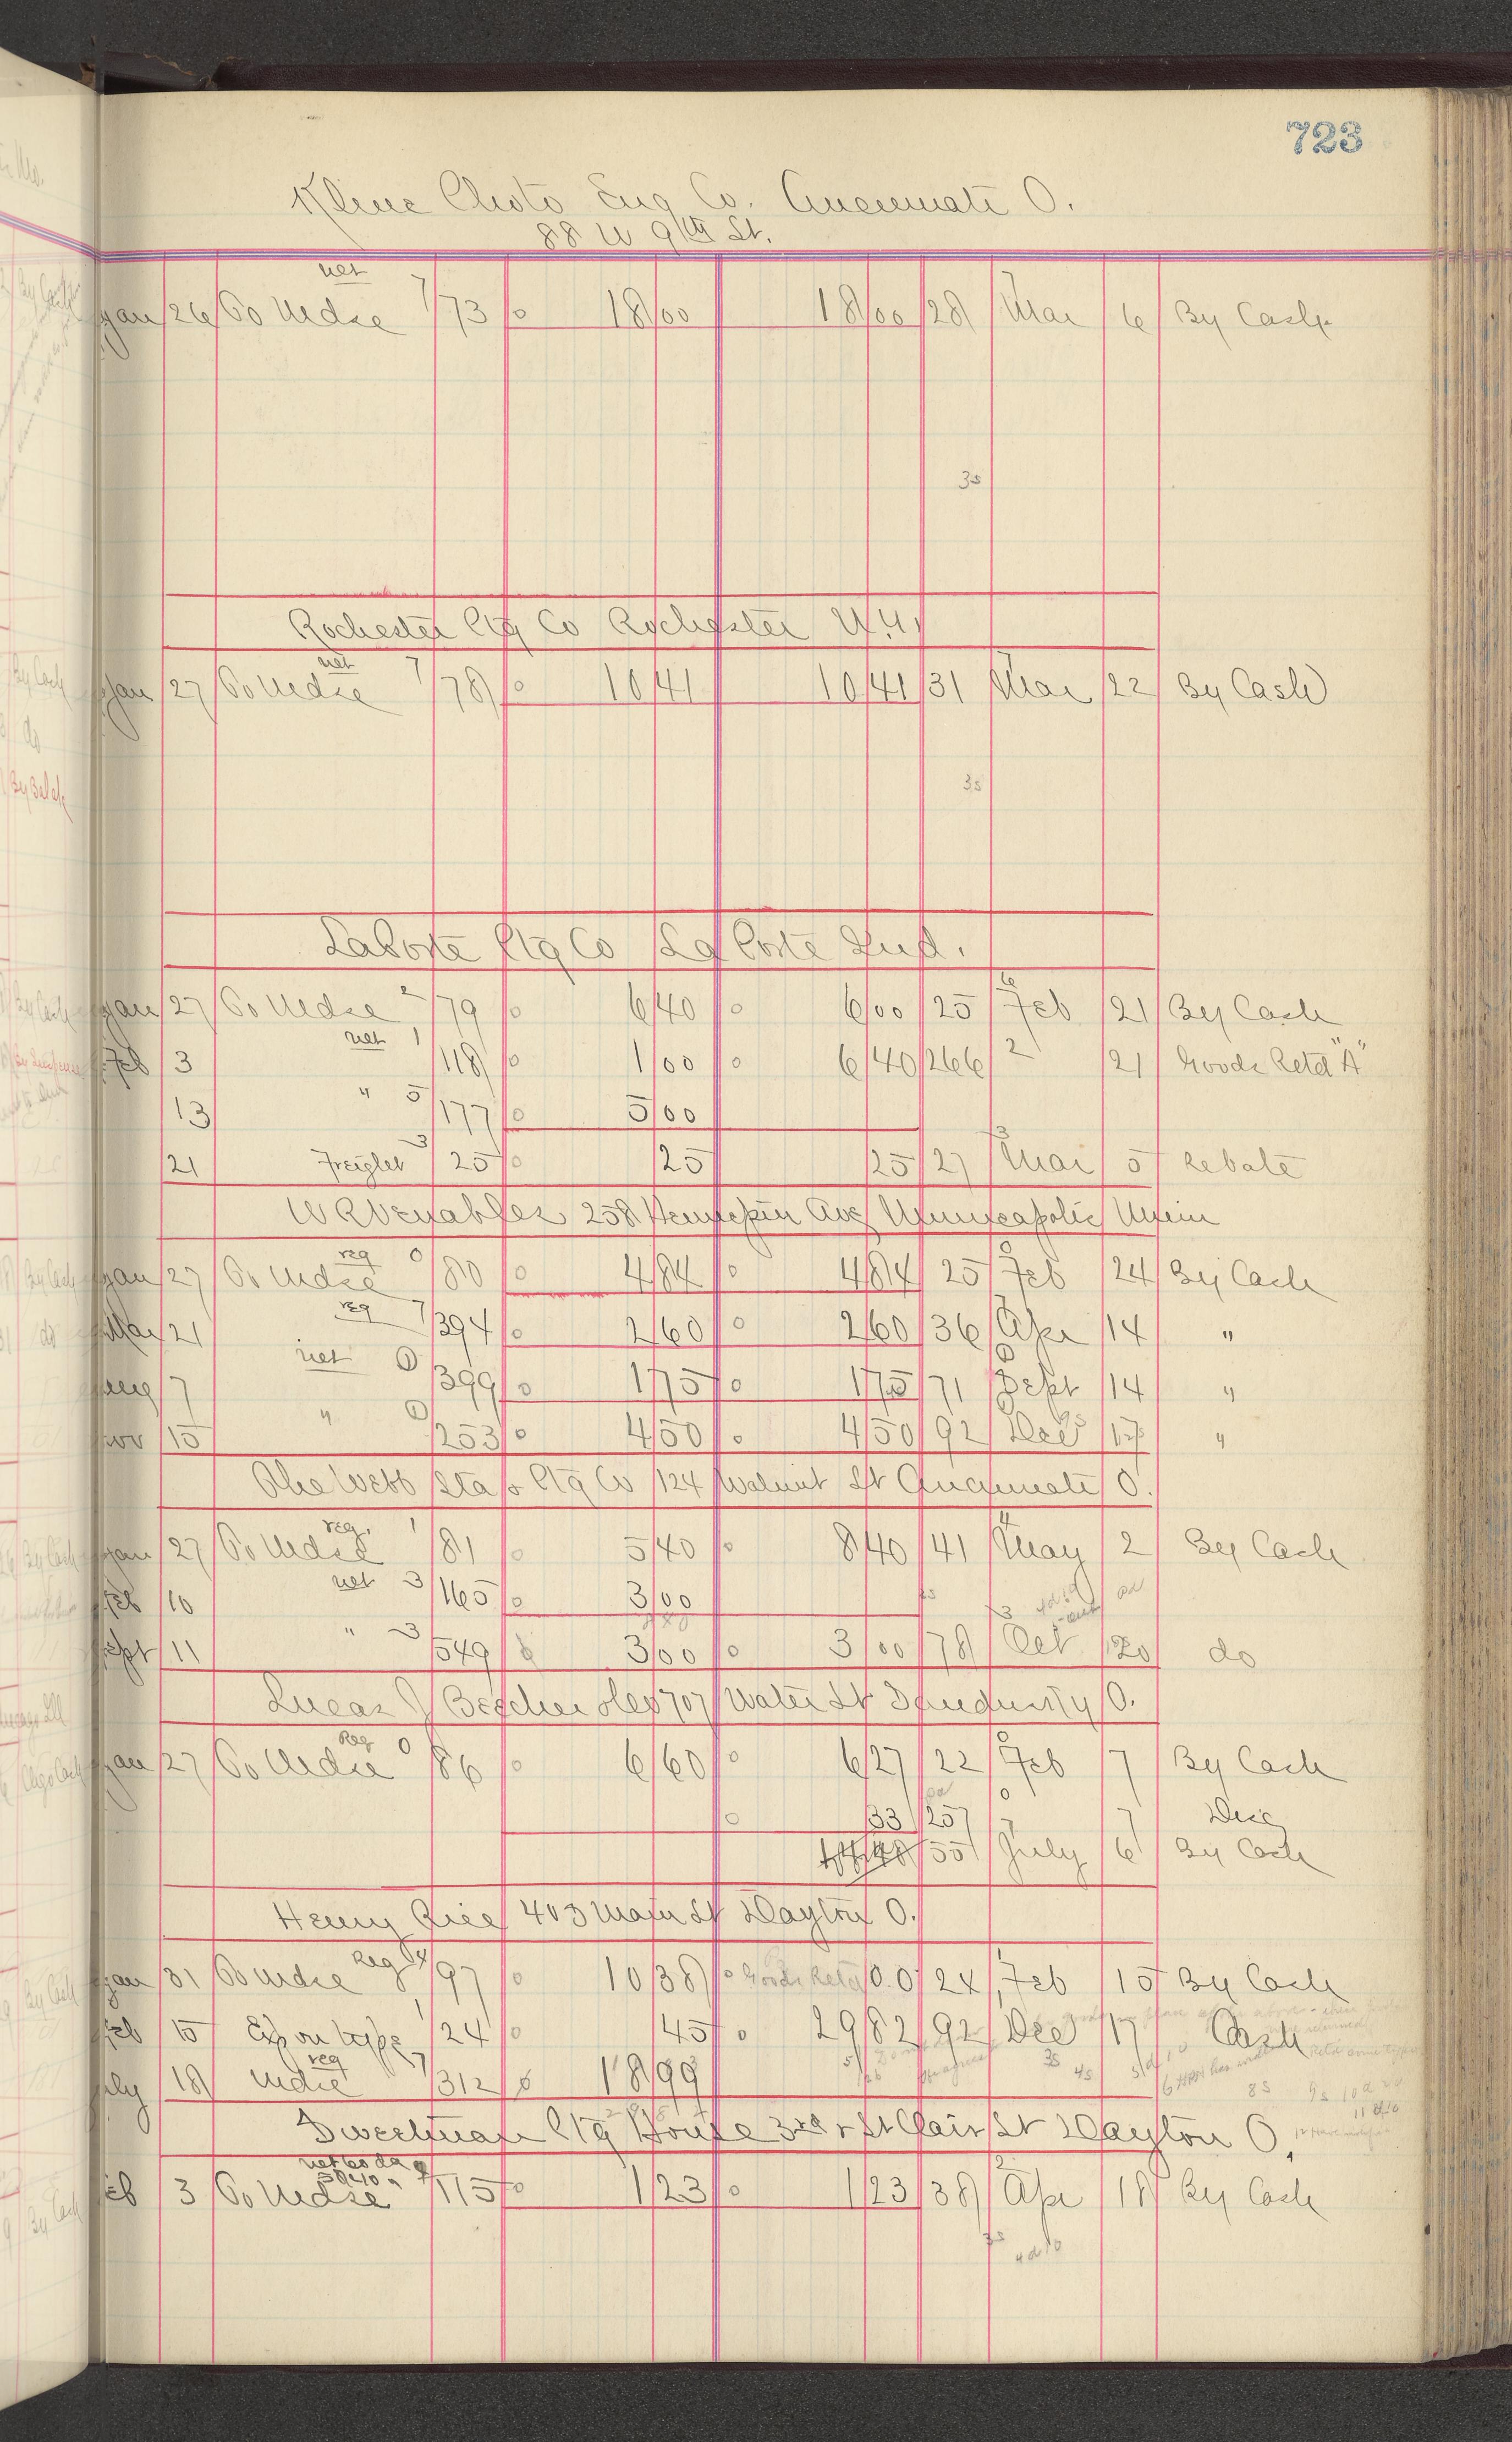 723
Kline Photo Eng Co. Cincinnati O.
88 W 9th St.
net 7
Jan 26 To Mdse 73 18 00 18 00 28 Mar 6 By Cash
35
Rochester Ptg Co Rochester N.Y.
net 7
Jan 27 To Mdse 78 10 41 10 41 31 Mar 22 By Cash
35
LaPorte Ptg Co La Porte Ind.
Jan 27 To Mdse 2 79 6 40 6 00 25 Feb 21 By Cash
Feb 3 net 1 118 1 00 6 40 266 2 21 Goods Retd "A"
13 " 5 177 5 00
21 Freight 3 25 25 25 27 Mar 5 Rebate
W R Venables 258 Hennepin Ave Minneapolis Minn
Jan 27 To Mdse reg 0 80 4 84 4 84 25 Feb 24 By Cash
Mar 21 reg 7 394 2 60 2 60 36 Apr 14 "
Aug 7 net 0 399 1 75 1 75 71 Sept 14 "
Nov 15 " 0 253 4 50 4 50 92 Dec 17 "
The Webb Sta & Ptg Co 124 Walnut St Cincinnati O.
Jan 27 To Mdse reg. 1 81 5 40 8 40 41 May 2 By Cash
Feb 10 net 3 165 3 00
Sept 11 " 3 549 3 00 3 00 78 Oct 20 do
Lucas J Beecher 707 Water St Sandusky O.
Jan 27 To Mdse Reg 0 86 6 60 6 27 22 Feb 7 By Cash
33 257 7 Disc
55 July 6 By Cash
Henry Rice 403 Main St Dayton O.
Jan 31 To Mdse Reg 97 10 38 Goods Retd 0.0 24 Feb 15 By Cash
Feb 15 Exp on type 1 24 45 29 82 92 Dec 17 Cash
July 18 Mdse reg 7 312 18 99
Sweetman Ptg House 3rd & St Clair St Dayton O.
net 60 da
Feb 3 To Mdse 115 1 23 1 23 38 Apr 18 By Cash